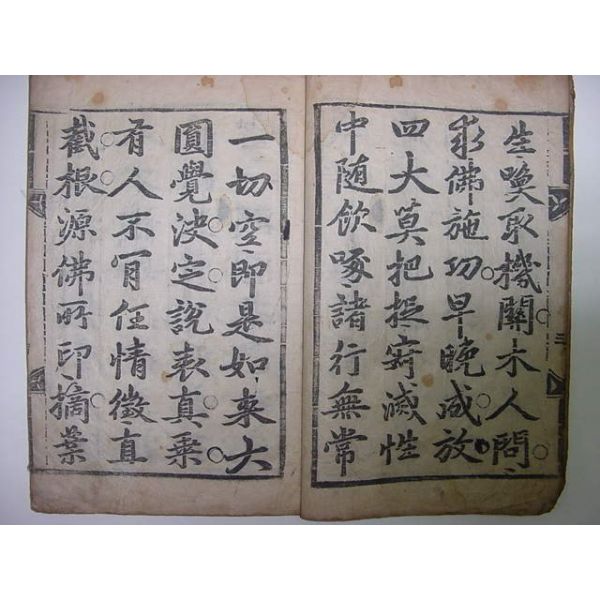 生喚取機關木人問
求佛施功早晚成放
四大莫把捉寂滅性
中随飲啄諸行無常
一切空即是如来大
圓覺决定説表真乗
有人不肎任情徵直
截根源佛所印摘葉
三